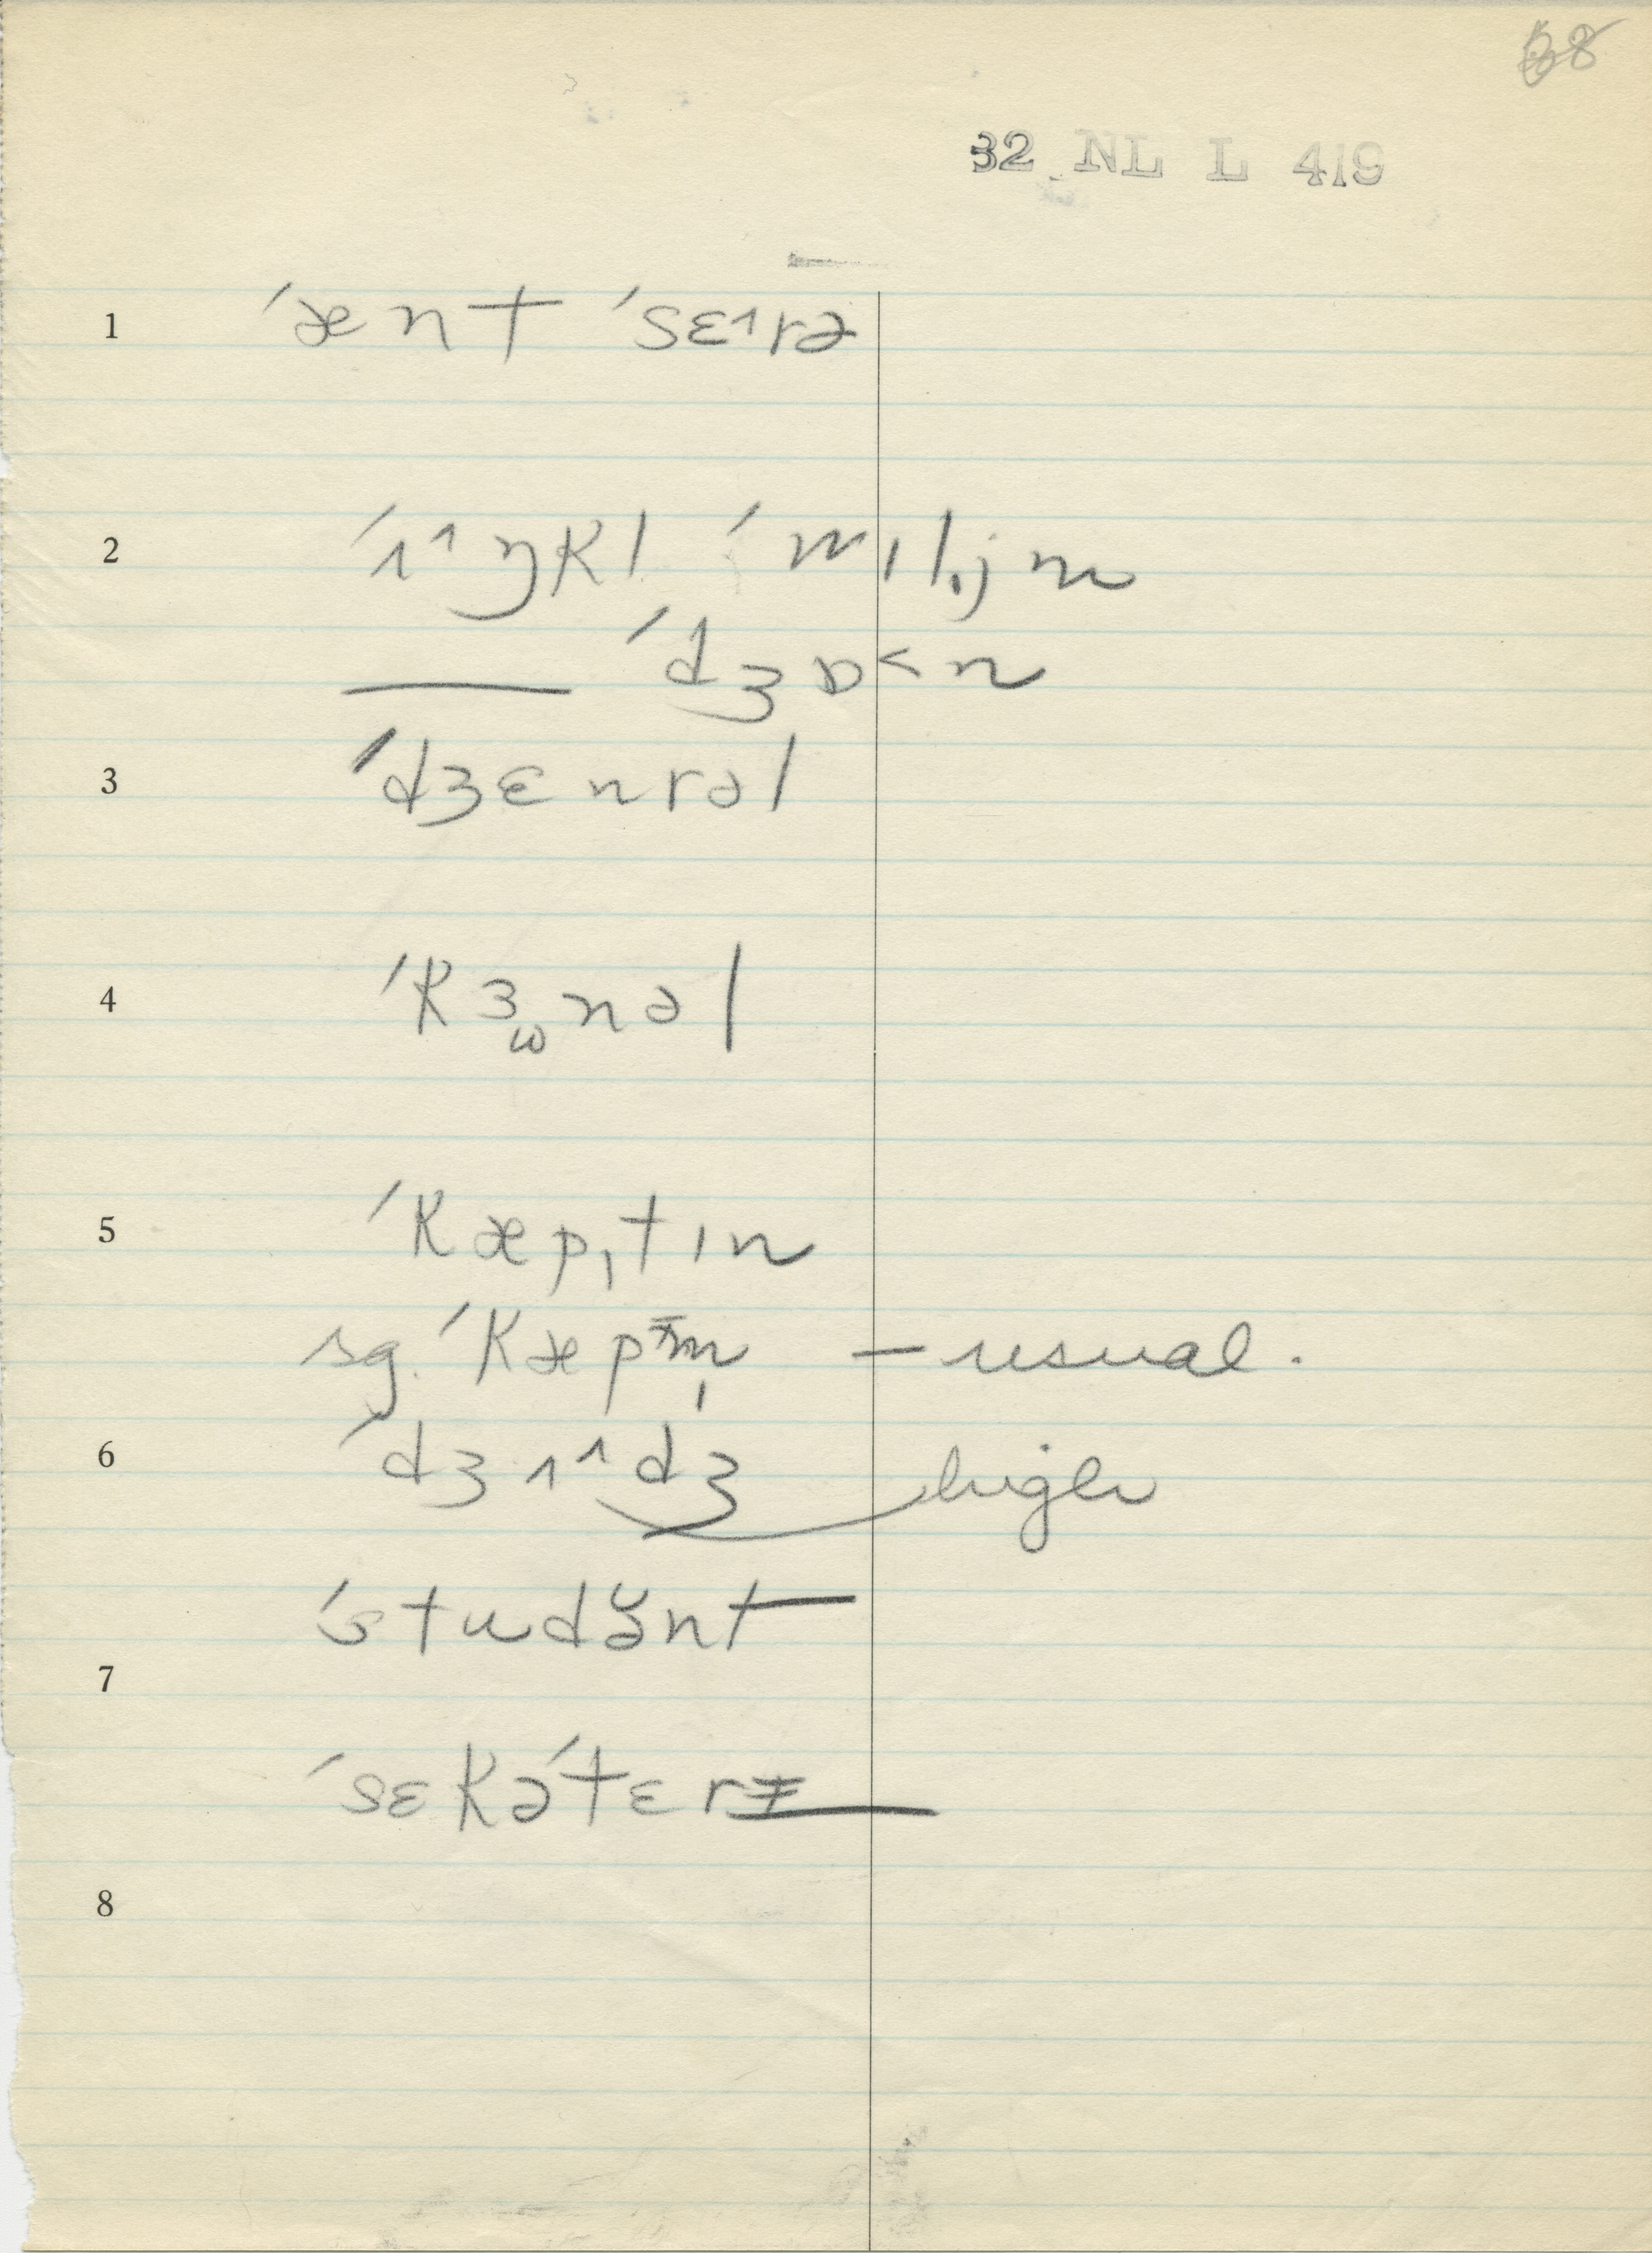 68
32 NL L 419
1 ˈænt ˈsɛ˄rə
2 ˈɪ˄ŋkl ˈwɪlɪ̯jm
—— ˈdʒɒ˂n
3 ˈdʒɛnrəl
4 ˈkɜ̫nəl
5 ˈkæpɪtɪn
sg. ˈkæpm̩ — usual.
6 ˈdʒʌ˄dʒ high
ˈstudə̆nt
7
ˈsɛkəˈtɛrɪ
8